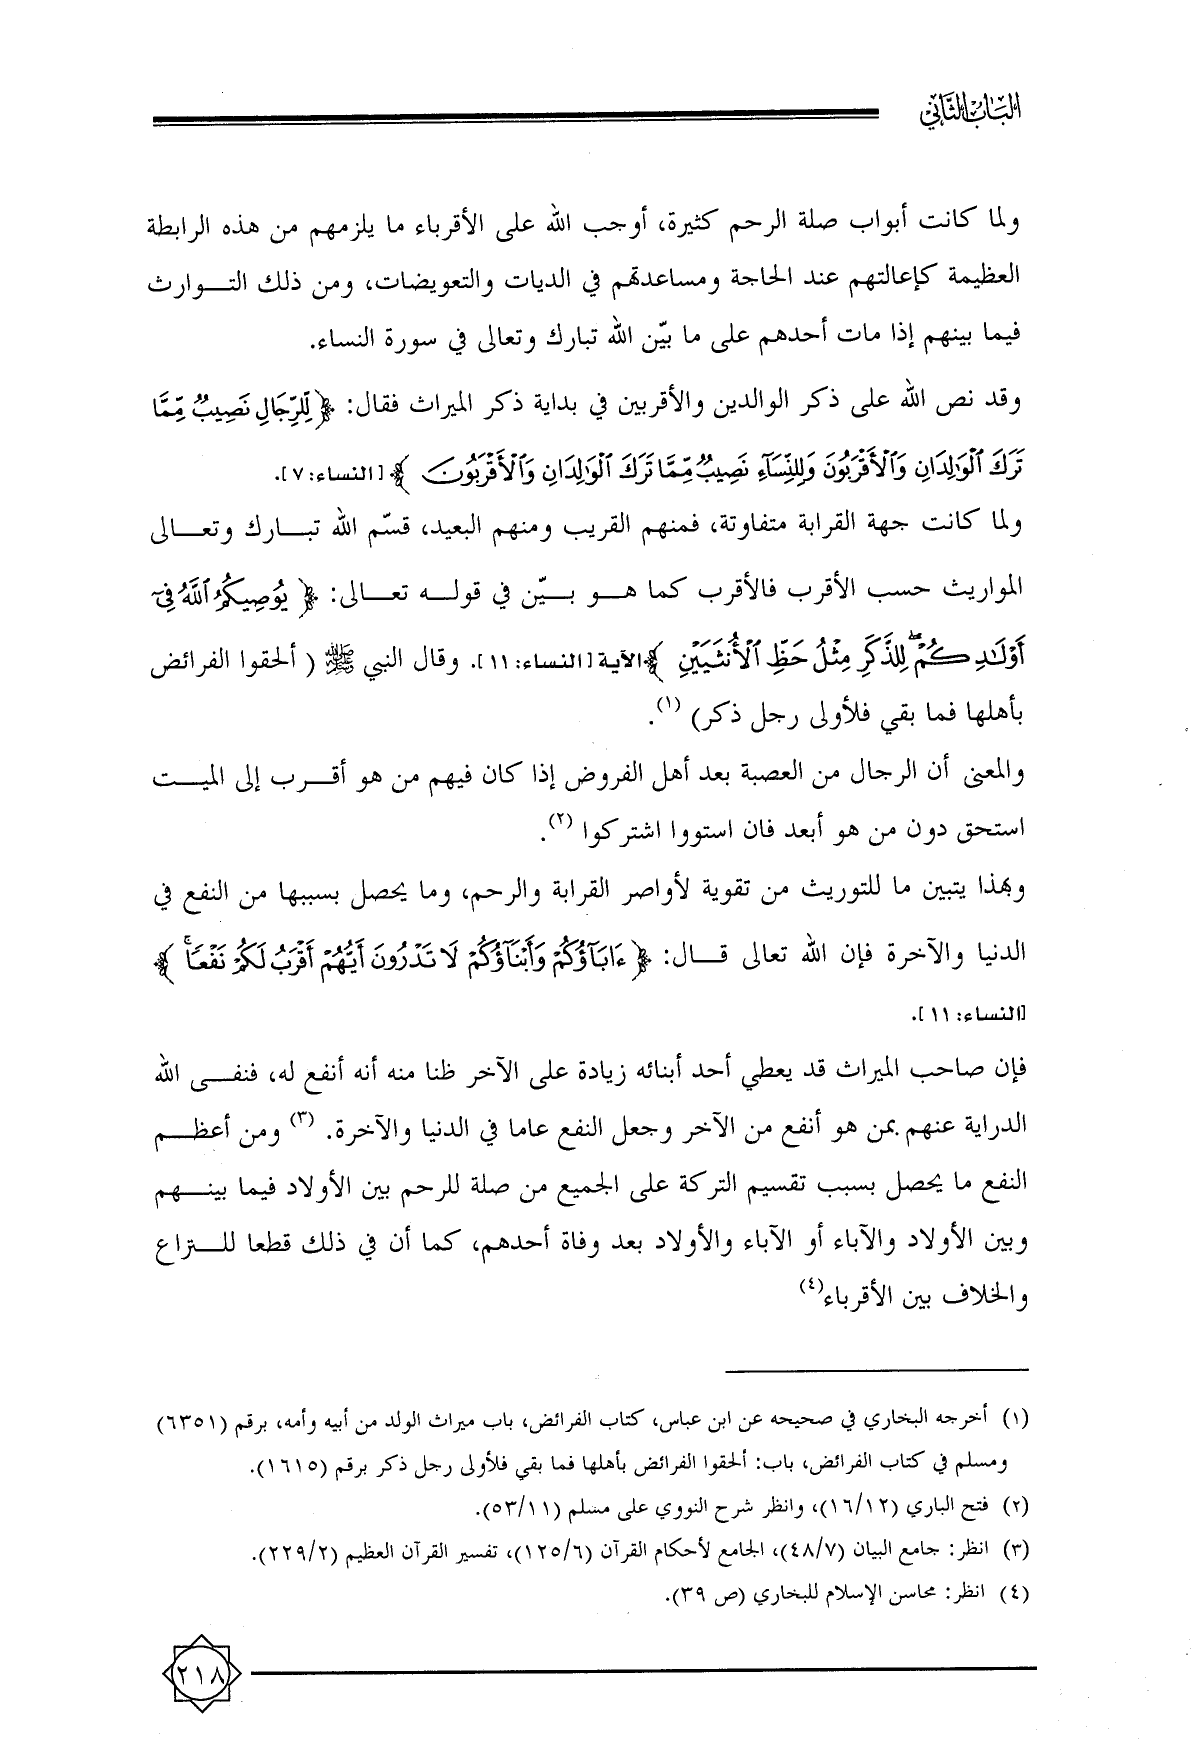 الباب الثاني
ولما كانت أبواب صلة الرحم كثيرة، أوجب الله على الأقرباء ما يلزمهم من هذه الرابطة
العظيمة كإعالتهم عند الحاجة ومساعدتهم في الديات والتعويضات، ومن ذلك التوارث
فيما بينهم إذا مات أحدهم على ما بيّن الله تبارك وتعالى في سورة النساء.
وقد نص الله على ذكر الوالدين والأقربين في بداية ذكر الميراث فقال: ﴿ لِّلرِّجَالِ نَصِيبٌ مِّمَّا
تَرَكَ ٱلْوَٰلِدَانِ وَٱلْأَقْرَبُونَ وَلِلنِّسَآءِ نَصِيبٌ مِّمَّا تَرَكَ ٱلْوَٰلِدَانِ وَٱلْأَقْرَبُونَ ﴾ [النساء: ٧].
ولما كانت جهة القرابة متفاوتة، فمنهم القريب ومنهم البعيد، قسّم الله تبارك وتعالى
المواريث حسب الأقرب فالأقرب كما هو بيّن في قوله تعالى: ﴿ يُوصِيكُمُ ٱللَّهُ فِىٓ
أَوْلَٰدِكُمْ ۖ لِلذَّكَرِ مِثْلُ حَظِّ ٱلْأُنثَيَيْنِ ﴾ الآية [النساء: ١١]. وقال النبي ﷺ ( ألحقوا الفرائض
بأهلها فما بقي فلأولى رجل ذكر) (١).
والمعنى أن الرجال من العصبة بعد أهل الفروض إذا كان فيهم من هو أقرب إلى الميت
استحق دون من هو أبعد فان استووا اشتركوا (٢).
وبهذا يتبين ما للتوريث من تقوية لأواصر القرابة والرحم، وما يحصل بسببها من النفع في
الدنيا والآخرة فإن الله تعالى قال: ﴿ ءَابَآؤُكُمْ وَأَبْنَآؤُكُمْ لَا تَدْرُونَ أَيُّهُمْ أَقْرَبُ لَكُمْ نَفْعًا ۚ ﴾
[النساء: ١١].
فإن صاحب الميراث قد يعطي أحد أبنائه زيادة على الآخر ظنا منه أنه أنفع له، فنفى الله
الدراية عنهم بمن هو أنفع من الآخر وجعل النفع عاما في الدنيا والآخرة. (٣) ومن أعظم
النفع ما يحصل بسبب تقسيم التركة على الجميع من صلة للرحم بين الأولاد فيما بينهم
وبين الأولاد والآباء أو الآباء والأولاد بعد وفاة أحدهم، كما أن في ذلك قطعا للنزاع
والخلاف بين الأقرباء(٤)
(١) أخرجه البخاري في صحيحه عن ابن عباس، كتاب الفرائض، باب ميراث الولد من أبيه وأمه، برقم (٦٣٥١)
ومسلم في كتاب الفرائض، باب: ألحقوا الفرائض بأهلها فما بقي فلأولى رجل ذكر برقم (١٦١٥).
(٢) فتح الباري (١٦/١٢)، وانظر شرح النووي على مسلم (٥٣/١١).
(٣) انظر: جامع البيان (٤٨/٧)، الجامع لأحكام القرآن (١٢٥/٦)، تفسير القرآن العظيم (٢٢٩/٢).
(٤) انظر: محاسن الإسلام للبخاري (ص ٣٩).
٢١٨